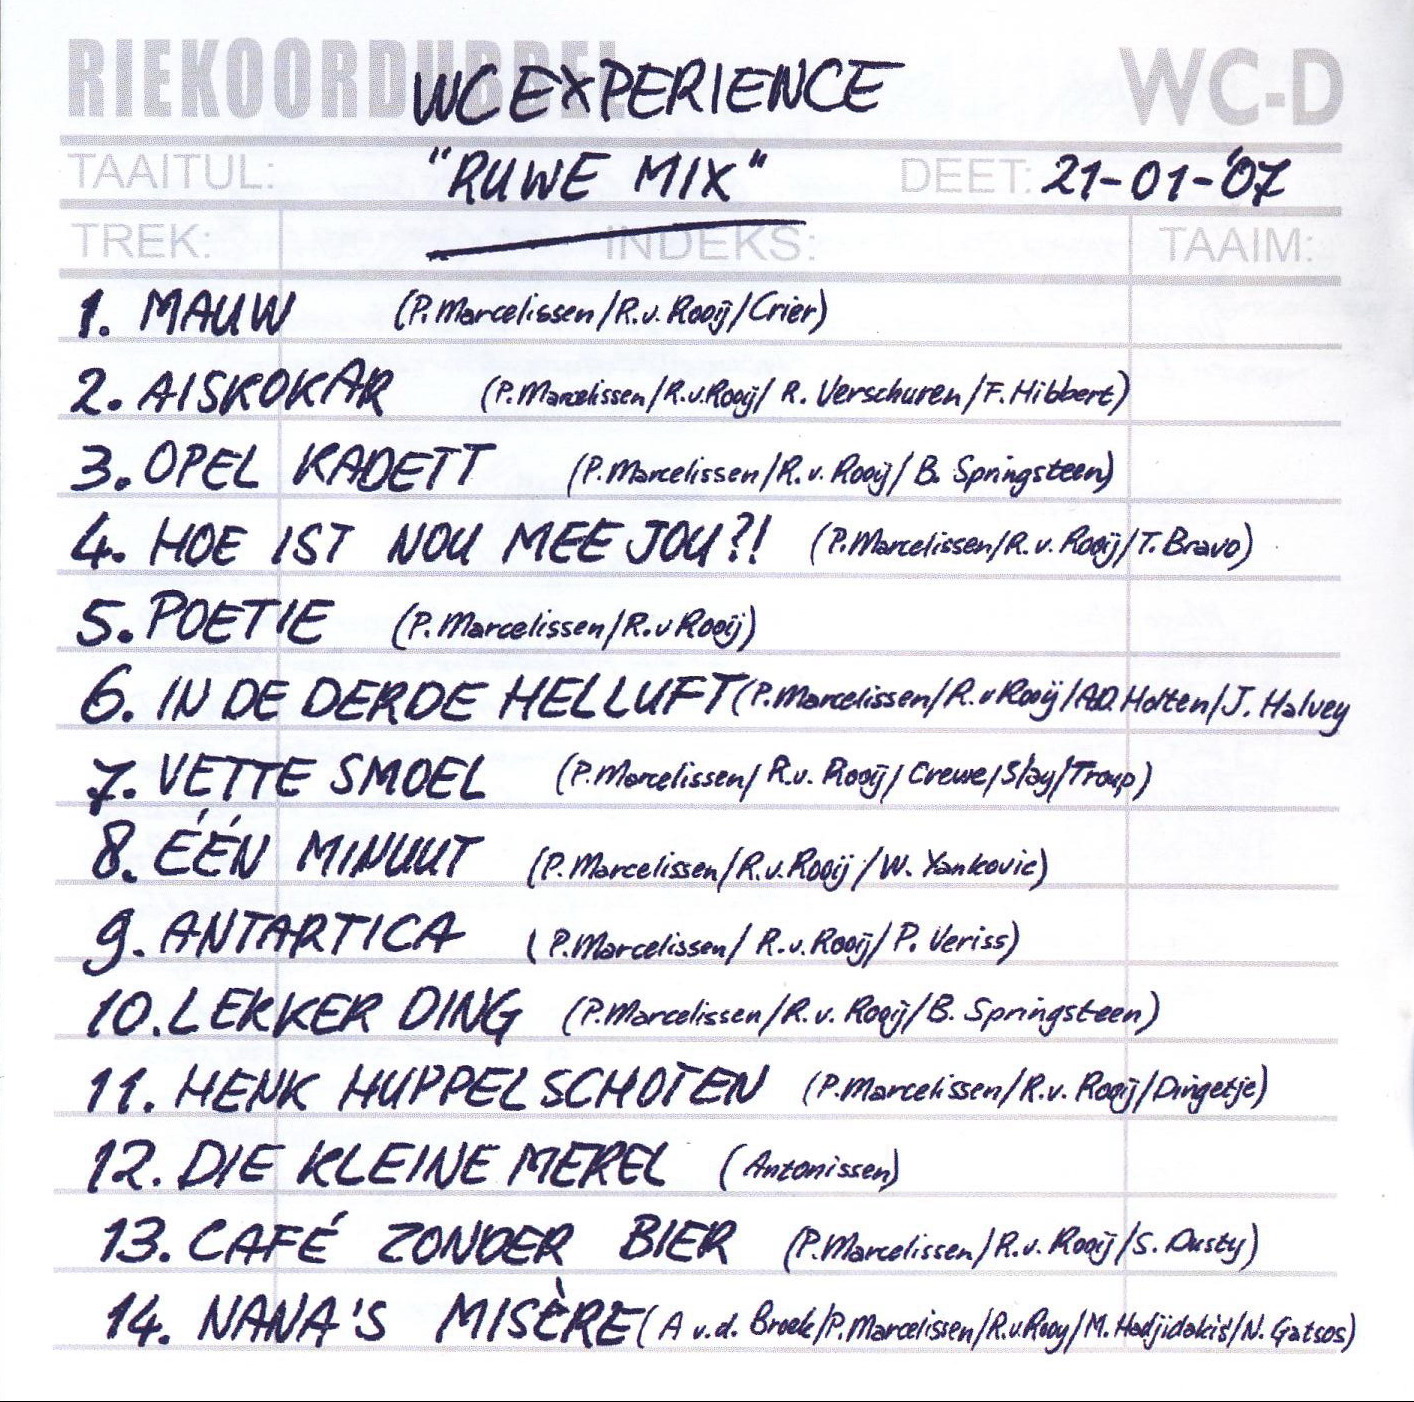 RIEKOORDUBBEL WC EXPERIENCE WC-D
TAAITUL: "RUWE MIX" DEET: 21-01-'07
TREK: INDEKS: TAAIM:
1. MAUW (P. Marcelissen/R.v. Rooij/Crier)
2. AISKOKAR (P. Marcelissen/R.v.Rooij/ R. Verschuren/F. Hibbert)
3. OPEL KADETT (P. Marcelissen/R.v. Rooij/ B. Springsteen)
4. HOE IST NOU MEE JOU?! (P. Marcelissen/R.v. Rooij/T. Bravo)
5. POETIE (P. Marcelissen/R.v Rooij)
6. IN DE DERDE HELLUFT (P. Marcelissen/R.v Rooij/AD. Holten/J. Halvey
7. VETTE SMOEL (P. Marcelissen/ R.v. Rooij/ Crewe/Slay/Troup)
8. ÉÉN MINUUT (P. Marcelissen/R.v.Rooij/W. Yankovic)
9. ANTARTICA (P. Marcelissen/ R.v.Rooij/ P. Veriss)
10. LEKKER DING (P. Marcelissen/R.v. Rooij/B. Springsteen)
11. HENK HUPPELSCHOTEN (P. Marcelissen/R.v. Rooij/Dingetje)
12. DIE KLEINE MEREL (Antonissen)
13. CAFÉ ZONDER BIER (P. Marcelissen/R.v. Rooij/S. Dusty)
14. NANA'S MISÈRE (A v.d. Broek/P. Marcelissen/R.v.Rooy/M. Hadjidakis/N. Gatsos)